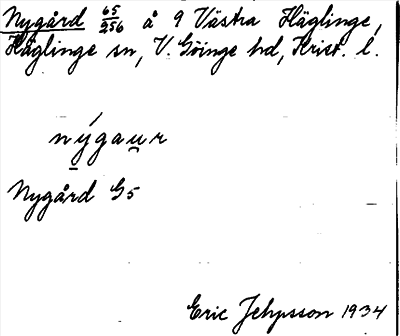 Nygård 65/256 å 9 Västra Häglinge,
Häglinge sn, V. Göinge hd, Krist. l.
nýgau̲r
Nygård G5
Eric Jehpsson 1934